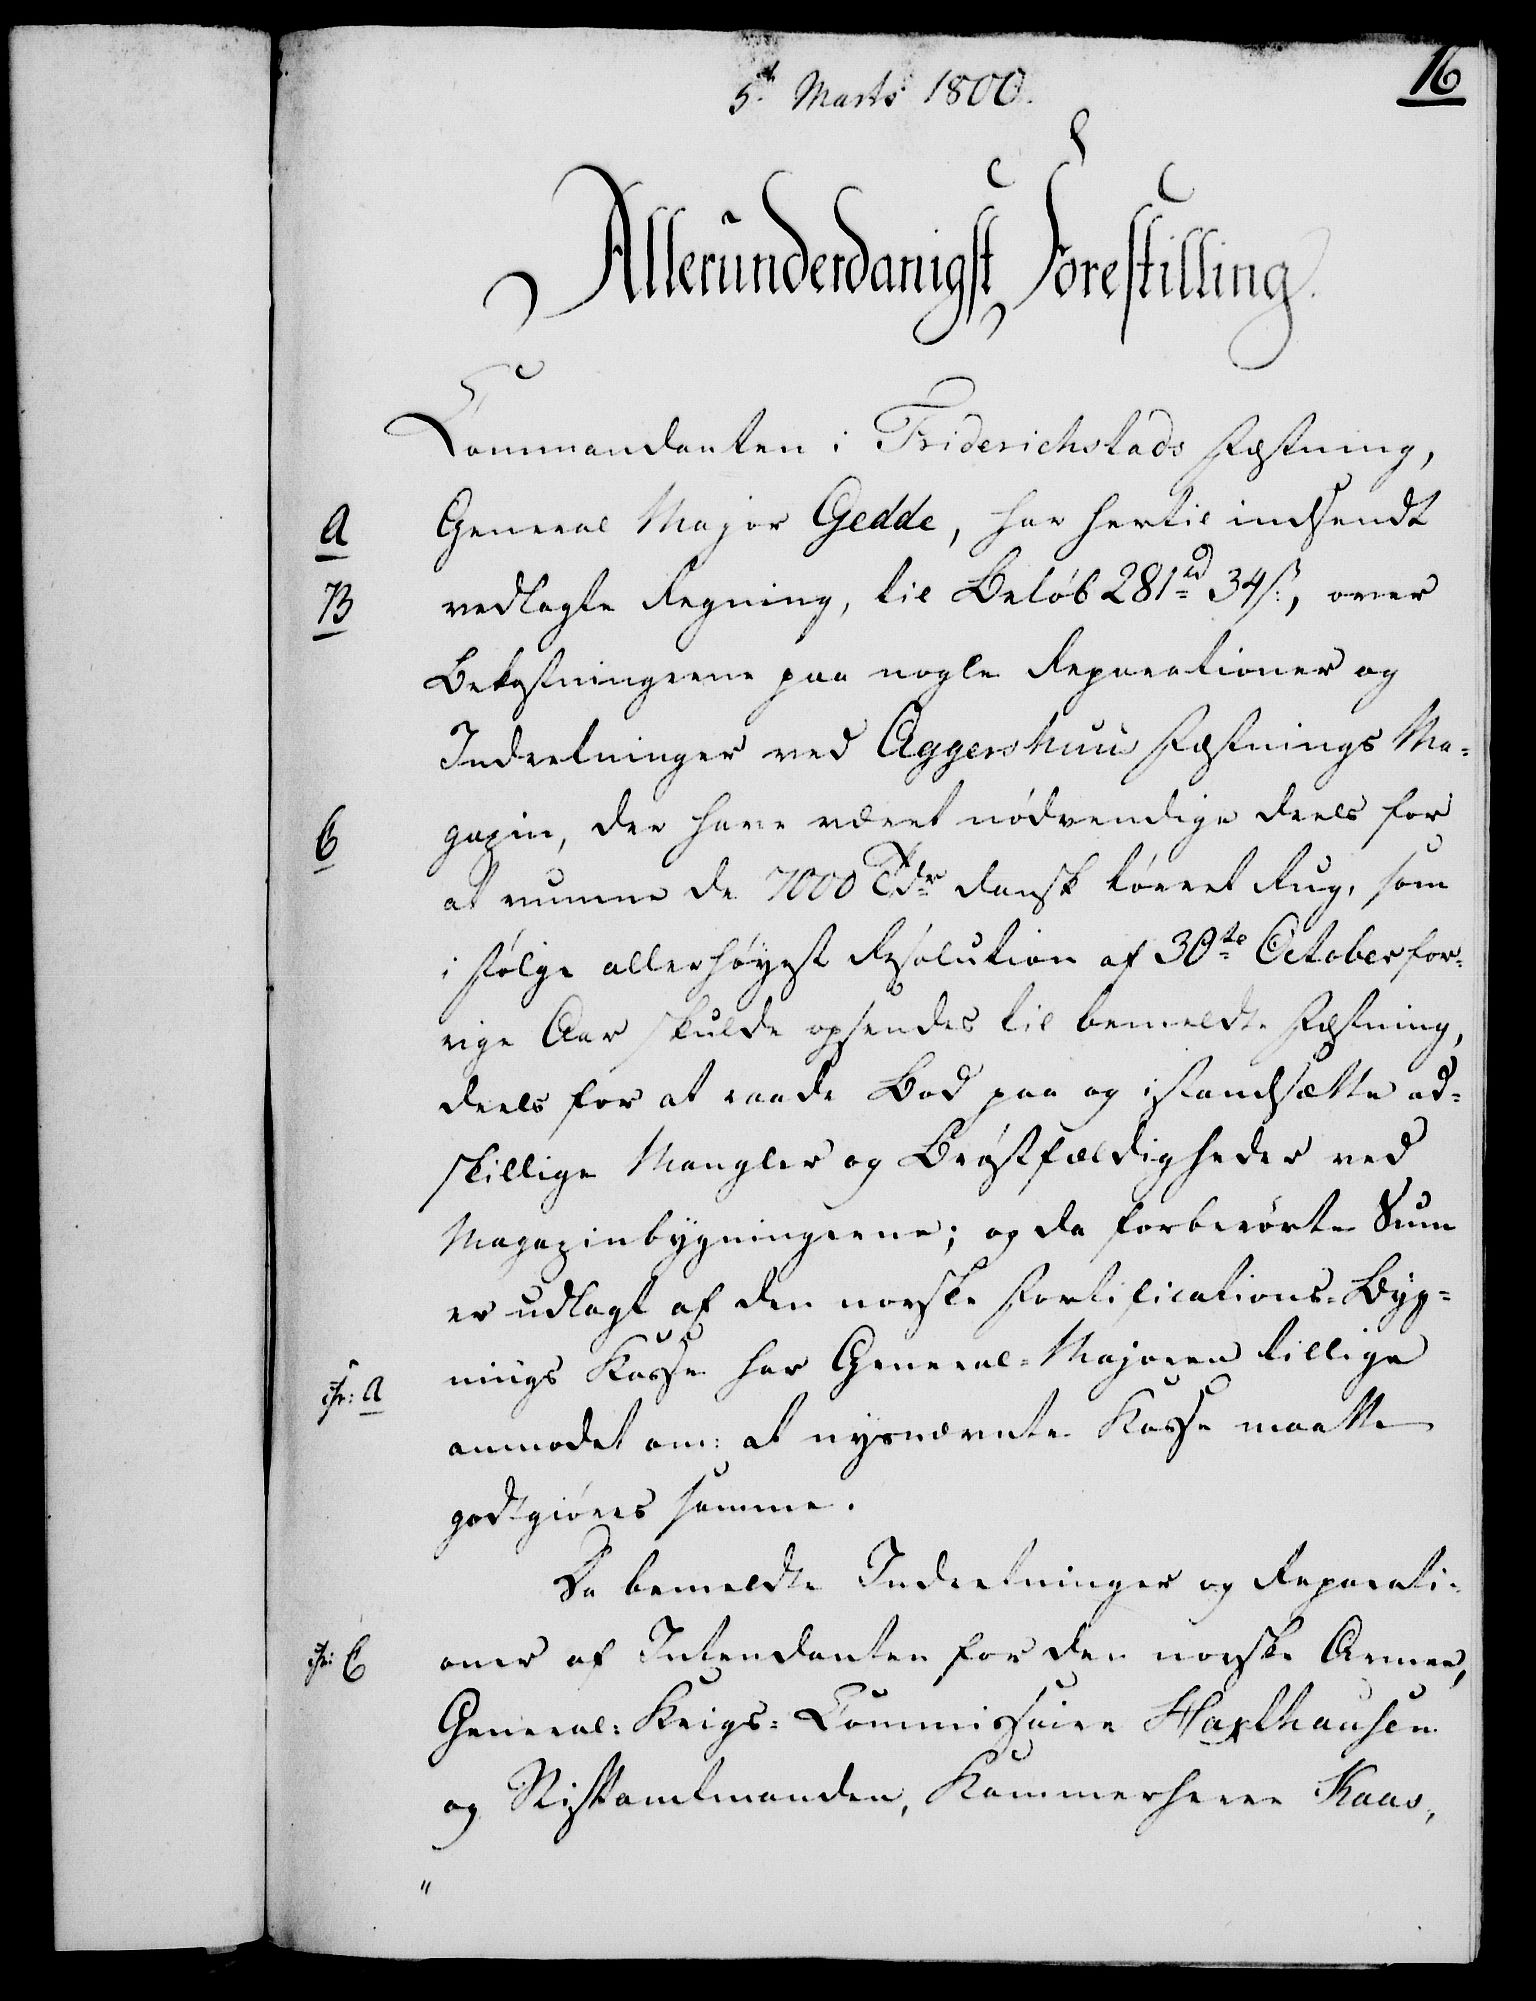 5t Marts 1800.
16
Allerunderdanigst Forestilling.
Commandanten i Friderichstads Fæstning,
a General Major Gedde, har hertil indsendt
B vedlagte Regning, til Beløb 281 rd 34 ß:, over
Bekostningerne paa nogle Reparationer og
Indretninger ved Aggershuus Fæstnings Ma=
C gazin, der have været nødvendige deels for
at rumme de 7000 Tdr dansk tørret Rug, som
i følge allerhøyest Resolution af 30te October for=
rige Aar skulde opsendes til bemeldte Fæstning,
deels for at raade Bod paa og istandsætte ad=
skillige Mangler og Brøstfældigheder ved
Magazinbygningerne; og da forberørte Sum
er udlagt af den norske Fortifications-Byg=
nings Kasse har General-Majoren tillige
cfr: a
anmodet om: at nysnævnte Kasse maatte
godtgiøres samme.
Da bemeldte Indretninger og Reparati=
cfr: C oner af Intendanten for den norske Armee,
General-Krigs-Commissaire Haxthausen
og Stiftamtmanden, Kammerherre Kaas,
"